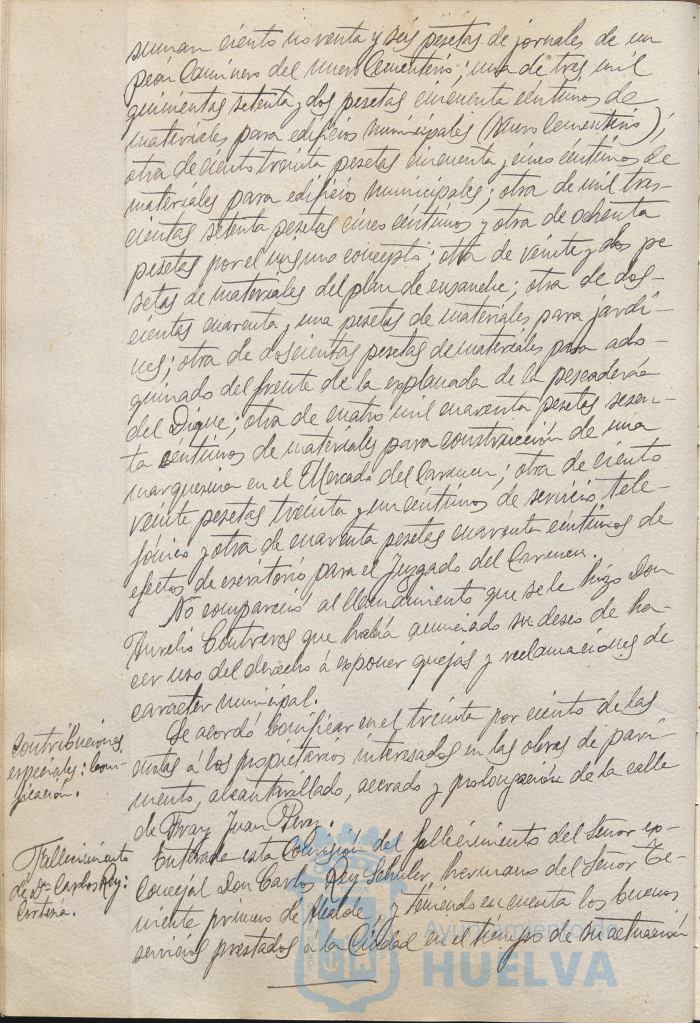 suman ciento noventa y seis pesetas de jornales de un
peón Caminero del nuevo Cementerio; una de tres mil
quinientas setenta y dos pesetas cincuenta céntimos de
materiales para edificios municipales (Nuevo Cementerio);
otra de ciento treinta pesetas cincuenta y cinco céntimos de
materiales para edificios municipales; otra de mil tres-
cientas setenta pesetas cinco céntimos y otra de ochenta
pesetas por el mismo concepto; otra de veinte y dos pe
setas de materiales del plan de ensanche; otra de dos-
cientas cuarenta y una pesetas de materiales para jardi-
nes; otra de doscientas pesetas de materiales para ado-
quinado del frente de la explanada de la pescadería
del Dique; otra de cuatro mil cuarenta pesetas sesen-
ta céntimos de materiales para construcción de una
marquesina en el Mercado del Carmen; otra de ciento
veinte pesetas treinta y un céntimos de servicio tele-
fónico y otra de cuarenta pesetas cuarenta céntimos de
efectos de escritorio para el Juzgado del Carmen.
No compareció al llamamiento que se le hizo Don
Aurelio Contreras que había anunciado su deseo de ha-
cer uso del derecho á exponer quejas y reclamaciones de
carácter municipal.
Contribuciones
especiales: boni-
ficación.
Se acordó bonificar en el treinta por ciento de las
cuotas á los propietarios interesados en las obras de pavi-
mento, alcantarillado, acerado y prolongación de la calle
de Fray Juan Pérez.
Fallecimiento
de Dn Carlos Rey:
Cortesía.
Enterada esta Comisión del fallecimiento del Señor ex-
Concejal Don Carlos Rey Schüler, hermano del Señor Te-
niente primero de Alcalde, y teniendo en cuenta los buenos
servicios prestados á la Ciudad en el tiempo de su actuación
Ayuntamiento de
HUELVA